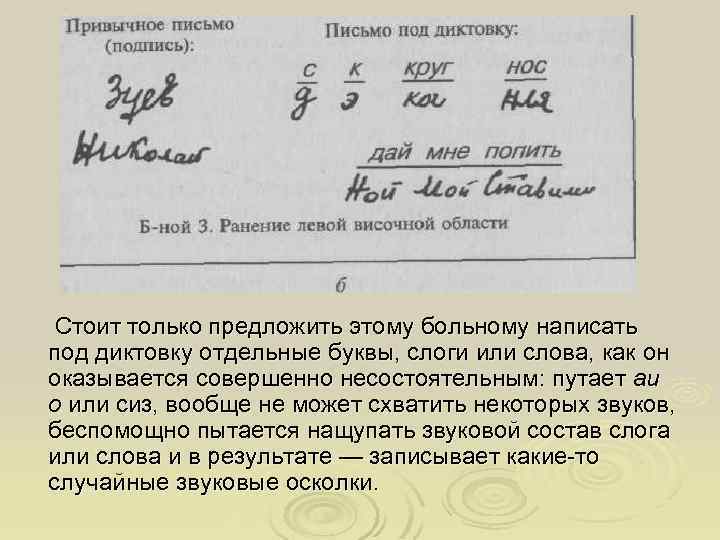 Привычное письмо
(подпись):
Зуев
Николай
Письмо под диктовку:
с к круг нос
д э ког нля
дай мне попить
Ной мой Ставили
Б-ной З. Ранение левой височной области
б
Стоит только предложить этому больному написать
под диктовку отдельные буквы, слоги или слова, как он
оказывается совершенно несостоятельным: путает аи
о или сиз, вообще не может схватить некоторых звуков,
беспомощно пытается нащупать звуковой состав слога
или слова и в результате — записывает какие-то
случайные звуковые осколки.